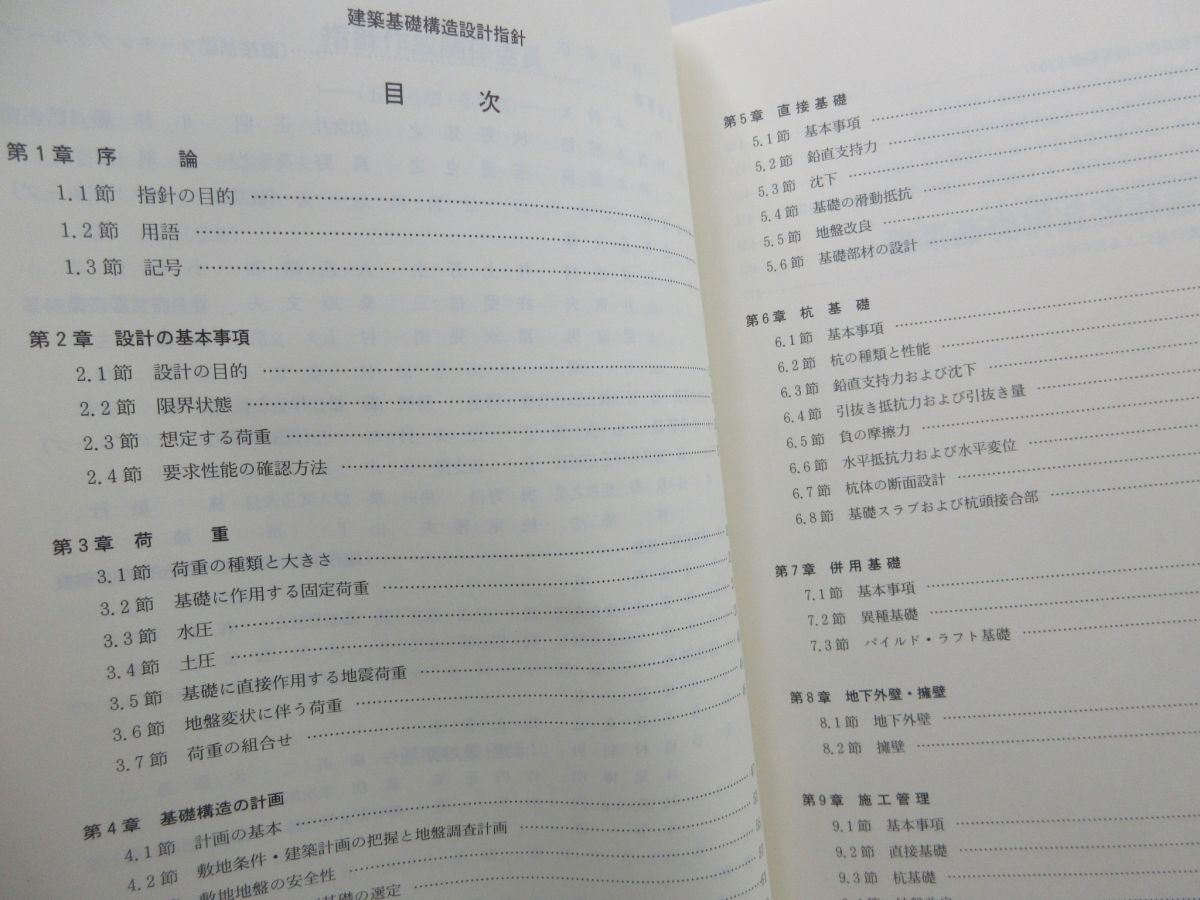 建築基礎構造設計指針
目 次
第1章 序 論
1.1節 指針の目的
1.2節 用語
1.3節 記号
第2章 設計の基本事項
2.1節 設計の目的
2.2節 限界状態
2.3節 想定する荷重
2.4節 要求性能の確認方法
第3章 荷 重
3.1節 荷重の種類と大きさ
3.2節 基礎に作用する固定荷重
3.3節 水圧
3.4節 土圧
3.5節 基礎に直接作用する地震荷重
3.6節 地盤変状に伴う荷重
3.7節 荷重の組合せ
第4章 基礎構造の計画
4.1節 計画の基本
4.2節 敷地条件・建築計画の把握と地盤調査計画
敷地地盤の安全性
基礎の選定
第5章 直接基礎
5.1節 基本事項
5.2節 鉛直支持力
5.3節 沈下
5.4節 基礎の滑動抵抗
5.5節 地盤改良
5.6節 基礎部材の設計
第6章 杭 基 礎
6.1節 基本事項
6.2節 杭の種類と性能
6.3節 鉛直支持力および沈下
6.4節 引抜き抵抗力および引抜き量
6.5節 負の摩擦力
6.6節 水平抵抗力および水平変位
6.7節 杭体の断面設計
6.8節 基礎スラブおよび杭頭接合部
第7章 併用基礎
7.1節 基本事項
7.2節 異種基礎
7.3節 パイルド・ラフト基礎
第8章 地下外壁・擁壁
8.1節 地下外壁
8.2節 擁壁
第9章 施工管理
9.1節 基本事項
9.2節 直接基礎
9.3節 杭基礎